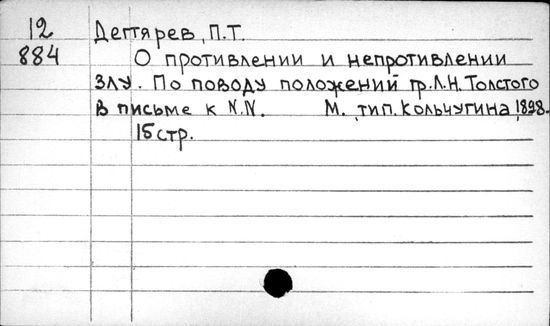 12 Дегтярев, П.Т.
884 О противлении и непротивлении
злу. По поводу положений гр. Л.Н. Толстого
в письме к N.N. М., тип. Кольчугина, 1898.
15 стр.